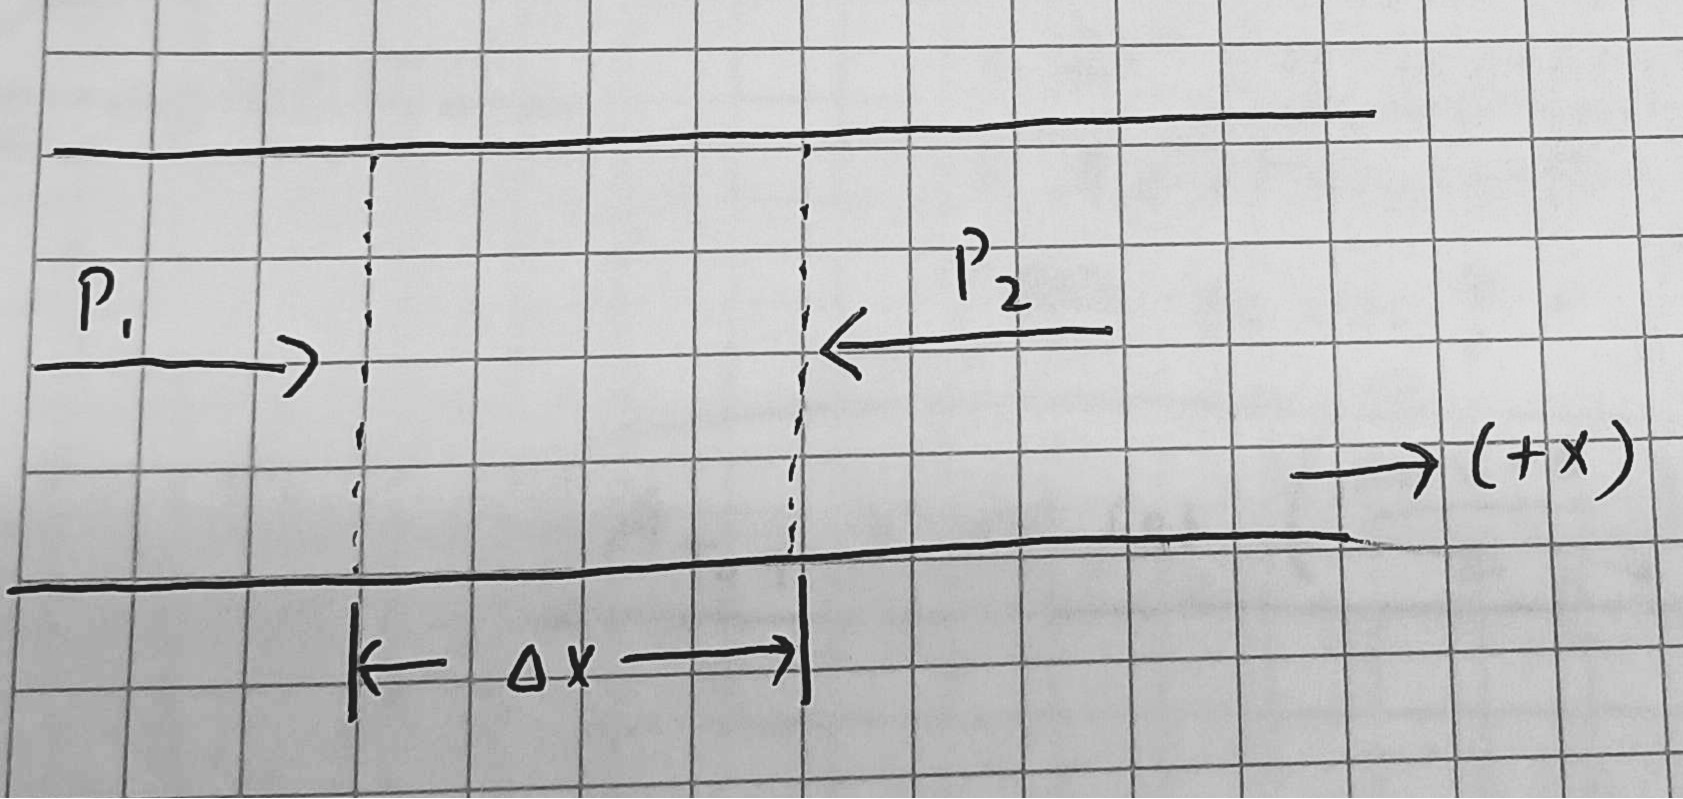 P₁
P₂
(+x)
Δx